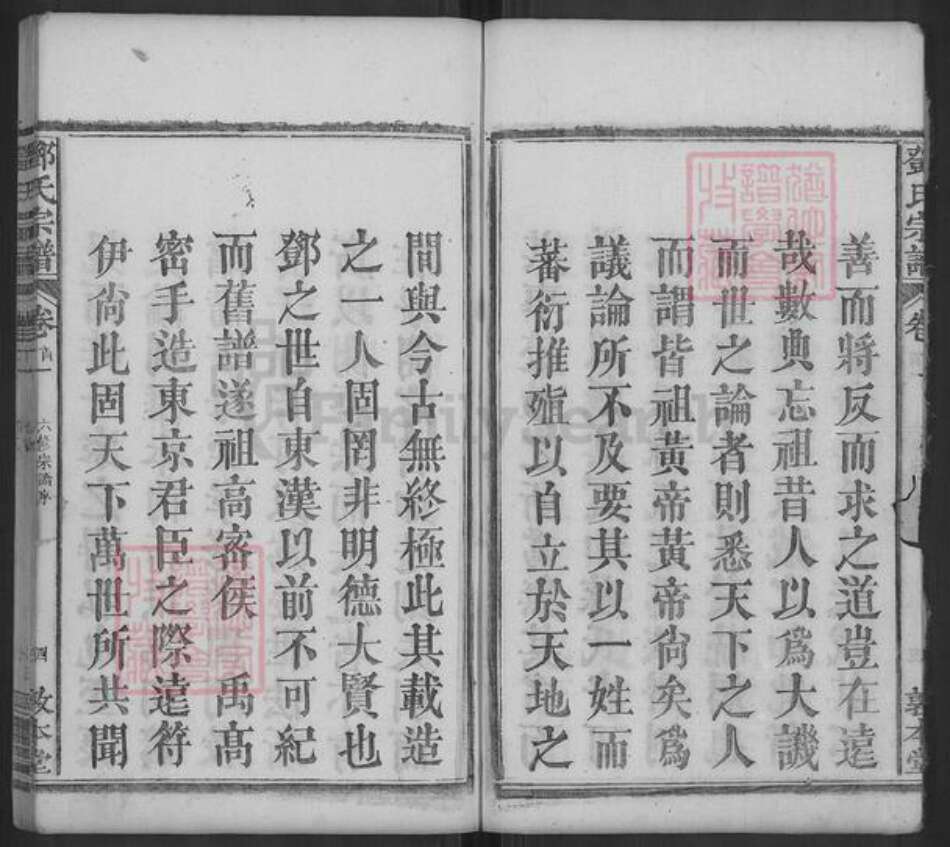 善而將反而求之道豈在遠
哉數典忘祖昔人以爲大譏
而世之論者則悉天下之人
而謂皆祖黃帝黃帝尙矣爲
議論所不及要其以一姓而
蕃衍推殖以自立於天地之
間與今古無終極此其載造
之一人固罔非明德大賢也
鄧之世自東漢以前不可紀
而舊譜遂祖高密侯 禹高
密手造東京君臣之際遠符
伊尙此固天下萬世所共聞
鄧氏宗譜
卷首
六修宗譜序
四
敦本堂